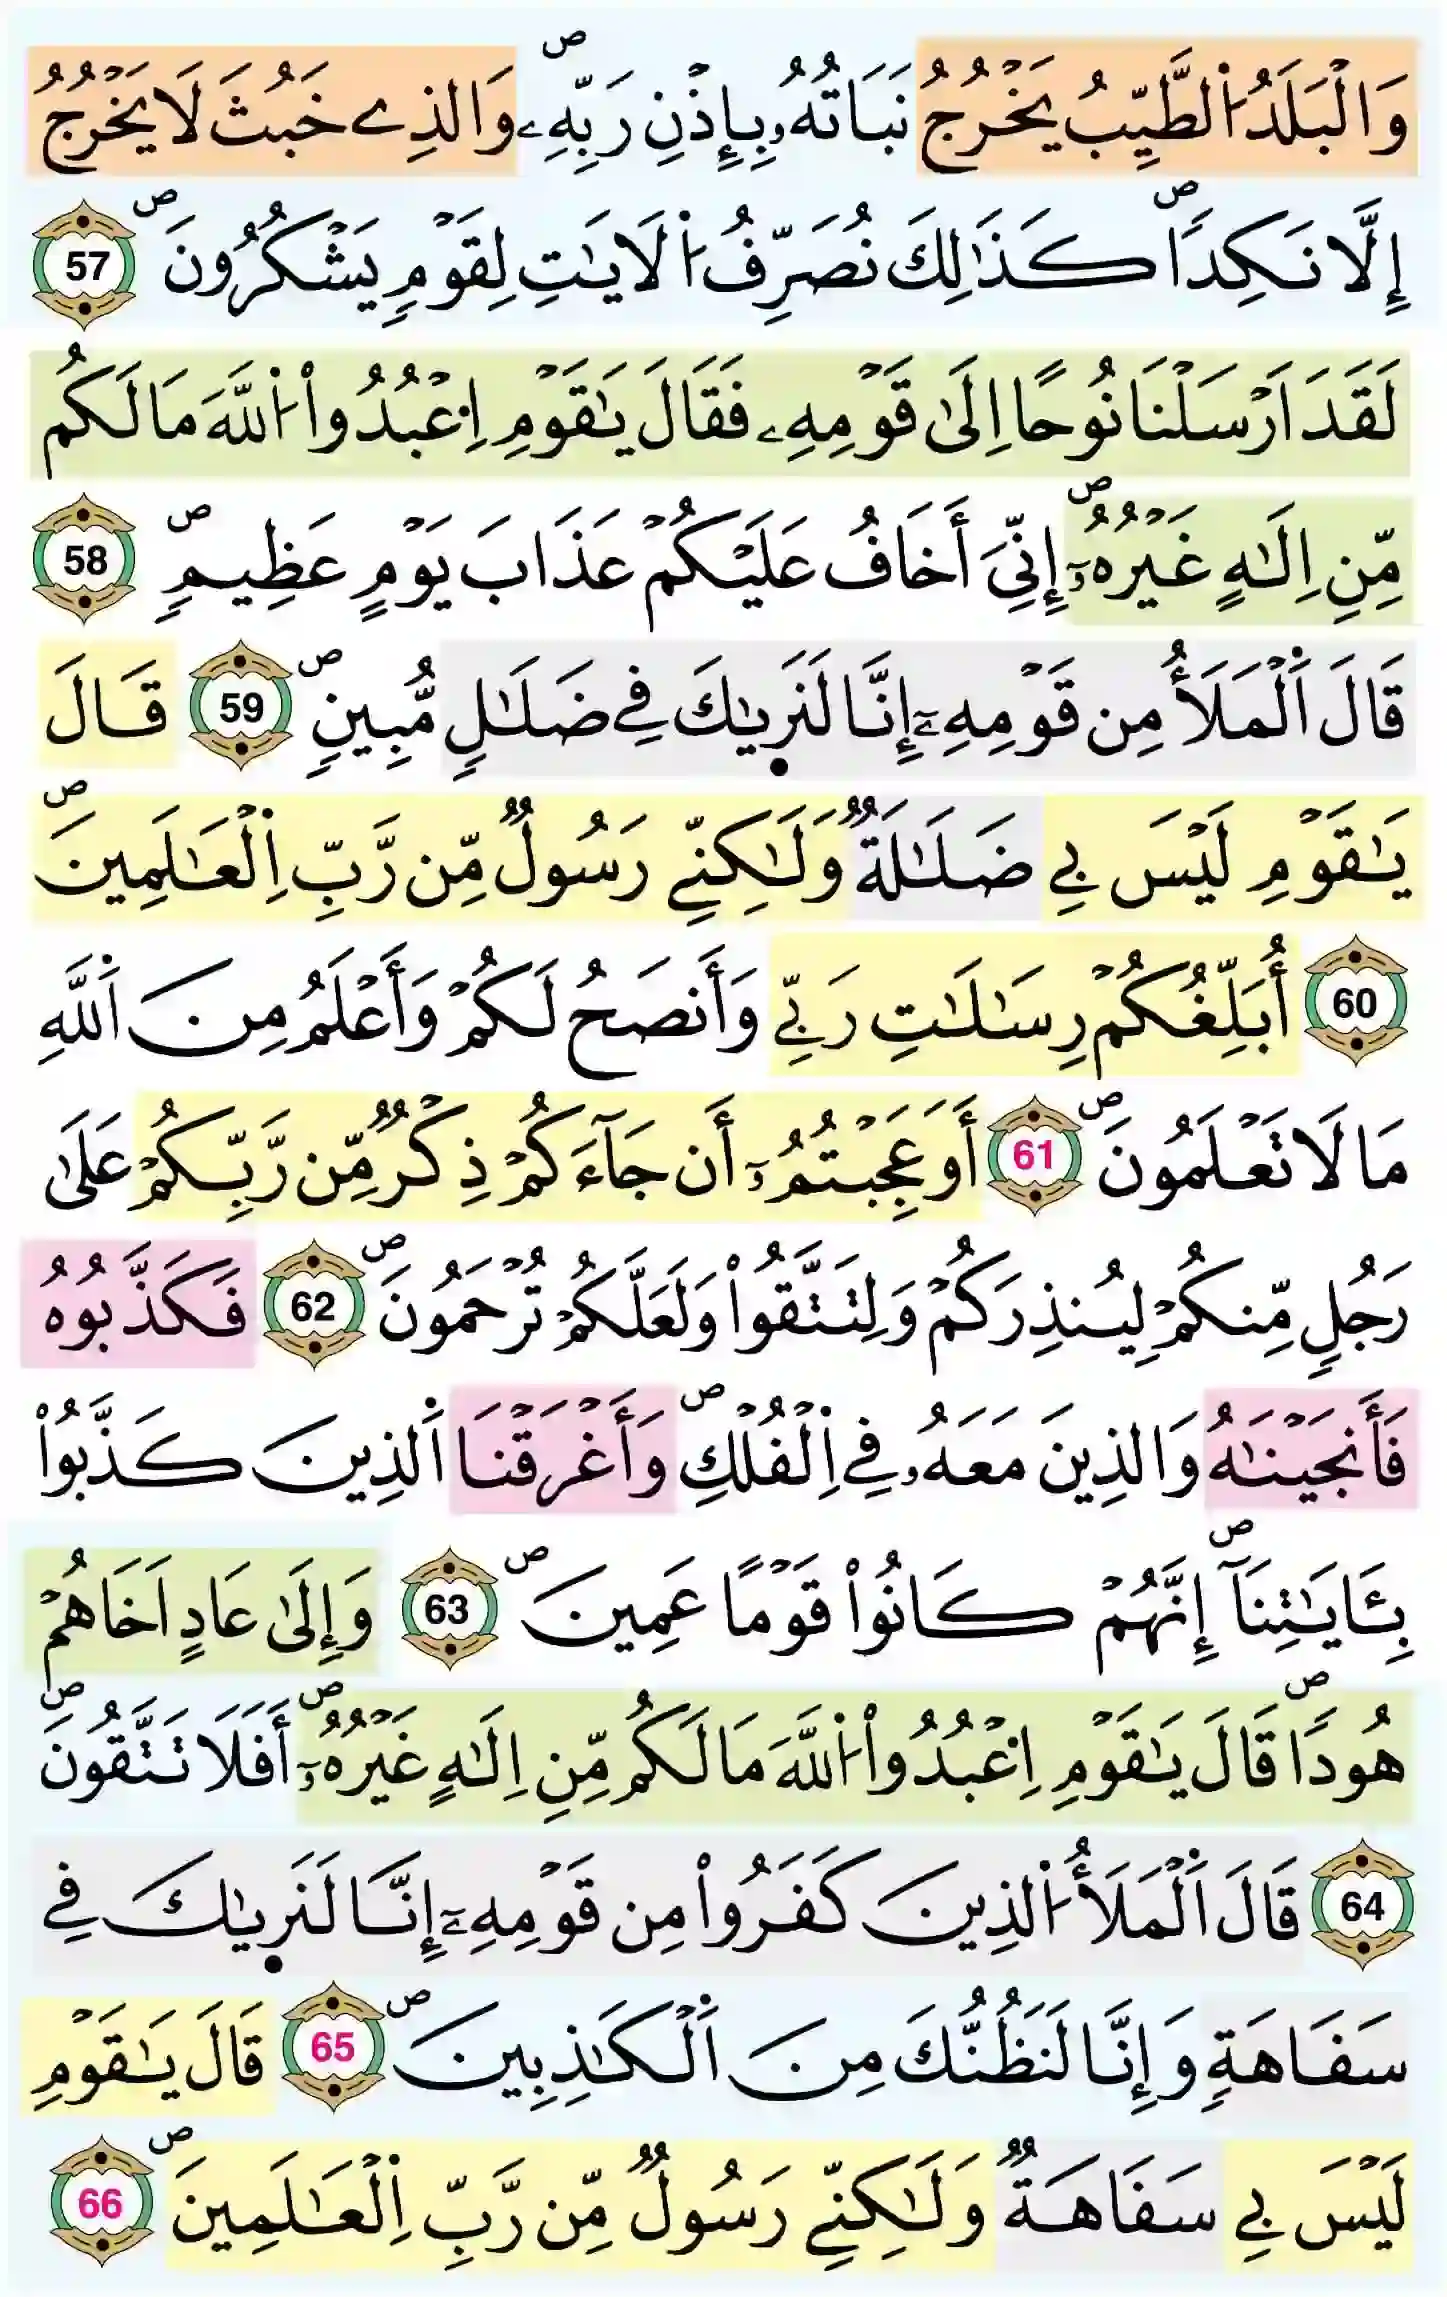 وَالْبَلَدُ اُ۬لطَّيِّبُ يَخْرُجُ نَبَاتُهُۥ بِإِذْنِ رَبِّهِۦۖ وَالذِے خَبُثَ لَا يَخْرُجُ
إِلَّا نَكِداٗۖ كَذَٰلِكَ نُصَرِّفُ اُ۬لَايَٰتِ لِقَوْمٖ يَشْكُرُونَۖ 57
لَقَدَ اَرْسَلْنَا نُوحاً اِلَىٰ قَوْمِهِۦ فَقَالَ يَٰقَوْمِ اِ۟عْبُدُواْ اُ۬للَّهَ مَا لَكُم
مِّنِ اِلَٰهٍ غَيْرُهُۥٓۖ إِنِّيَ أَخَافُ عَلَيْكُمْ عَذَابَ يَوْمٍ عَظِيمٖۖ 58
قَالَ اَ۬لْمَلَأُ مِن قَوْمِهِۦٓ إِنَّا لَنَر۪يٰكَ فِے ضَلَٰلٖ مُّبِينٖۖ 59 قَالَ
يَٰقَوْمِ لَيْسَ بِے ضَلَٰلَةٞ وَلَٰكِنِّے رَسُولٞ مِّن رَّبِّ اِ۬لْعَٰلَمِينَۖ
60 أُبَلِّغُكُمْ رِسَٰلَٰتِ رَبِّے وَأَنصَحُ لَكُمْ وَأَعْلَمُ مِنَ اَ۬للَّهِ
مَا لَا تَعْلَمُونَۖ 61 أَوَعَجِبْتُمُۥٓ أَن جَآءَكُمْ ذِكْرٞ مِّن رَّبِّكُمْ عَلَىٰ
رَجُلٖ مِّنكُمْ لِيُنذِرَكُمْ وَلِتَتَّقُواْ وَلَعَلَّكُمْ تُرْحَمُونَۖ 62 فَكَذَّبُوهُ
فَأَنجَيْنَٰهُ وَالذِينَ مَعَهُۥ فِے اِ۬لْفُلْكِۖ وَأَغْرَقْنَا اَ۬لذِينَ كَذَّبُواْ
بِـَٔايَٰتِنَآۖ إِنَّهُمْ كَانُواْ قَوْماً عَمِينَۖ 63 وَإِلَىٰ عَادٍ اَخَاهُمْ
هُوداٗۖ قَالَ يَٰقَوْمِ اِ۟عْبُدُواْ اُ۬للَّهَ مَا لَكُم مِّنِ اِلَٰهٍ غَيْرُهُۥٓۖ أَفَلَا تَتَّقُونَۖ
64 قَالَ اَ۬لْمَلَأُ اُ۬لذِينَ كَفَرُواْ مِن قَوْمِهِۦٓ إِنَّا لَنَر۪يٰكَ فِے
سَفَاهَةٖ وَإِنَّا لَنَظُنُّكَ مِنَ اَ۬لْكَٰذِبِينَۖ 65 قَالَ يَٰقَوْمِ
لَيْسَ بِے سَفَاهَةٞ وَلَٰكِنِّے رَسُولٞ مِّن رَّبِّ اِ۬لْعَٰلَمِينَۖ 66